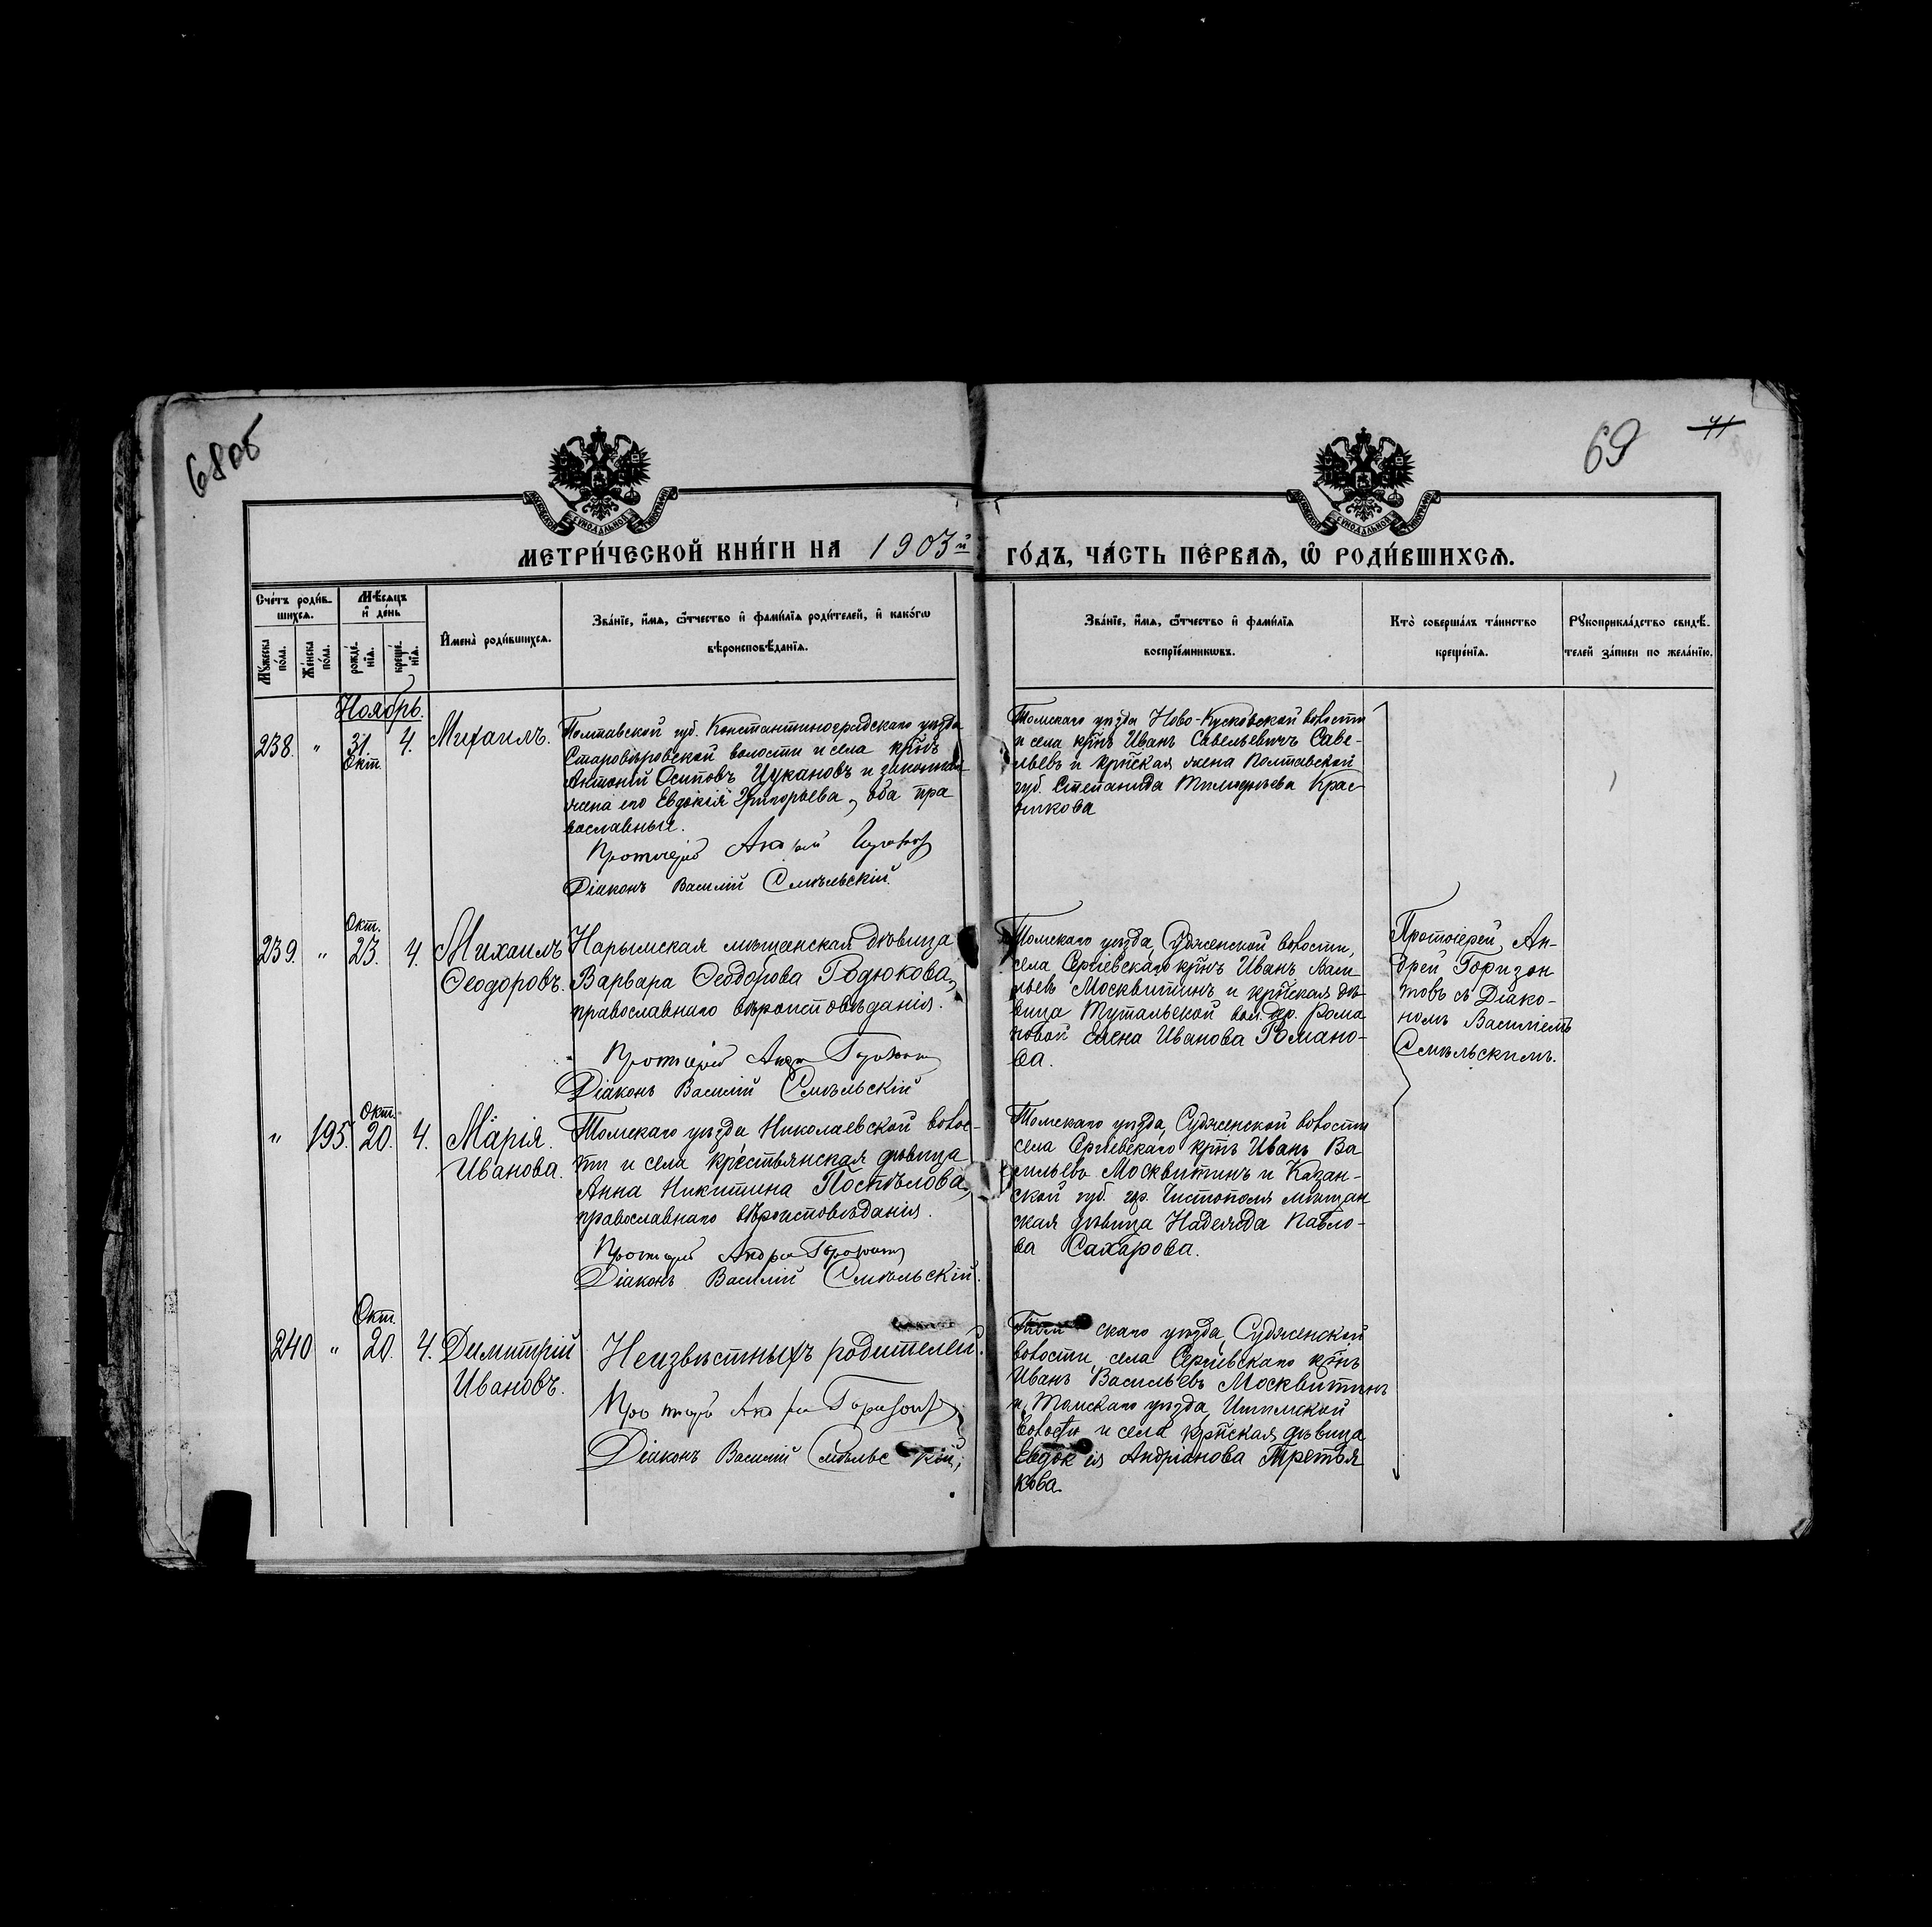 68об
69
41
МОСКОВСКОЙ СѴНОДАЛЬНОЙ ТИПОГРАФІИ
МОСКОВСКОЙ СѴНОДАЛЬНОЙ ТИПОГРАФІИ
МЕТРИ́ЧЕСКОЙ КНИ́ГИ НА 1903й ГО́ДЪ, ЧА́СТЬ ПЕ́РВАѦ, Ѡ҆ РОДИ́ВШИХСѦ.
Сче́тъ роди́в-
шихсѧ.
Мꙋ́жеска
по́ла.
Же́нска
по́ла.
Мѣ́сѧцъ
и҆ де́нь
рожде́-
нїѧ.
креще́-
нїѧ.
И҆мена̀ роди́вшихсѧ.
Зва́нїе, и҆́мѧ, ѻ҆́тчество и҆ фами́лїѧ роди́телей, и҆ како́гѡ
вѣроисповѣ́данїѧ.
Зва́нїе, и҆́мѧ, ѻ҆́тчество и҆ фами́лїѧ
воспрїе́мникѡвъ.
Кто̀ соверша́лъ та́инство
креще́нїѧ.
Рꙋкоприкла́дство свидѣ́-
телей за́писи по жела́нїю.
Ноябрь.
238. " 31. Окт. 4. Михаилъ.
Полтавской губ. Константиноградскаго уѣзда
Старовѣровской волости и села крнъ
Антоній Осиповъ Цукановъ и законная
жена его Евдокія Григорьева, оба пра
вославные.
Протоіерей
Діаконъ Василій Смѣльскій.
Томскаго уѣзда Ново-Кусковской волости
и села крнъ Иванъ Савельевичъ Саве-
льевъ и крнская жена Полтавской
губ. Степанида
никова
239. " Окт. 23. 4. Михаилъ
Ѳеодоровъ.
Нарымская мѣщанская дѣвица
Варвара Ѳеодорова Родюкова,
православнаго вѣроисповѣданія.
Протоіерей
Діаконъ Василій Смѣльскій
Томскаго уѣзда, Судженской волости,
села Сергіевскаго крнъ Иванъ Васи
льевъ Москвитинъ и крнская дѣ-
вица Тутальской вол. др. Рома
новой Елена Ивановa Романо-
ва.
Протоіерей Ан-
дрей Горизон
товъ съ Діако-
номъ Василіемъ
Смѣльскимъ.
" 195. Окт. 20. 4. Марія.
Иванова.
Томскаго уѣзда Николаевской волос-
ти и села крестьянская дѣвица
Анна Никитина Поспѣлова,
православнаго вѣроисповѣданія.
Протоіерей Андрей
Діаконъ Василій Смѣльскій.
Томскаго уѣзда, Судженской волости
села Сергіевскаго крнъ Иванъ Ва
сильевъ Москвитинъ и Казан-
ской губ. гр. Чистополя мѣщан
ская дѣвица Надежда Павло-
ва Сахарова.
240 " Окт. 20. 4. Димитрій
Ивановъ.
Неизвѣстныхъ родителей.
Протоіерей Андрей Горизонтовъ
Діаконъ Василій Смѣльскій,
Томскаго уѣзда, Судженской
волости, села Сергіевскаго крнъ
Иванъ Васильевъ Москвитинъ
и Томскаго уѣзда, Ишимской
волости и села крнская дѣвица
Евдокія Андріанова Третья
кова.